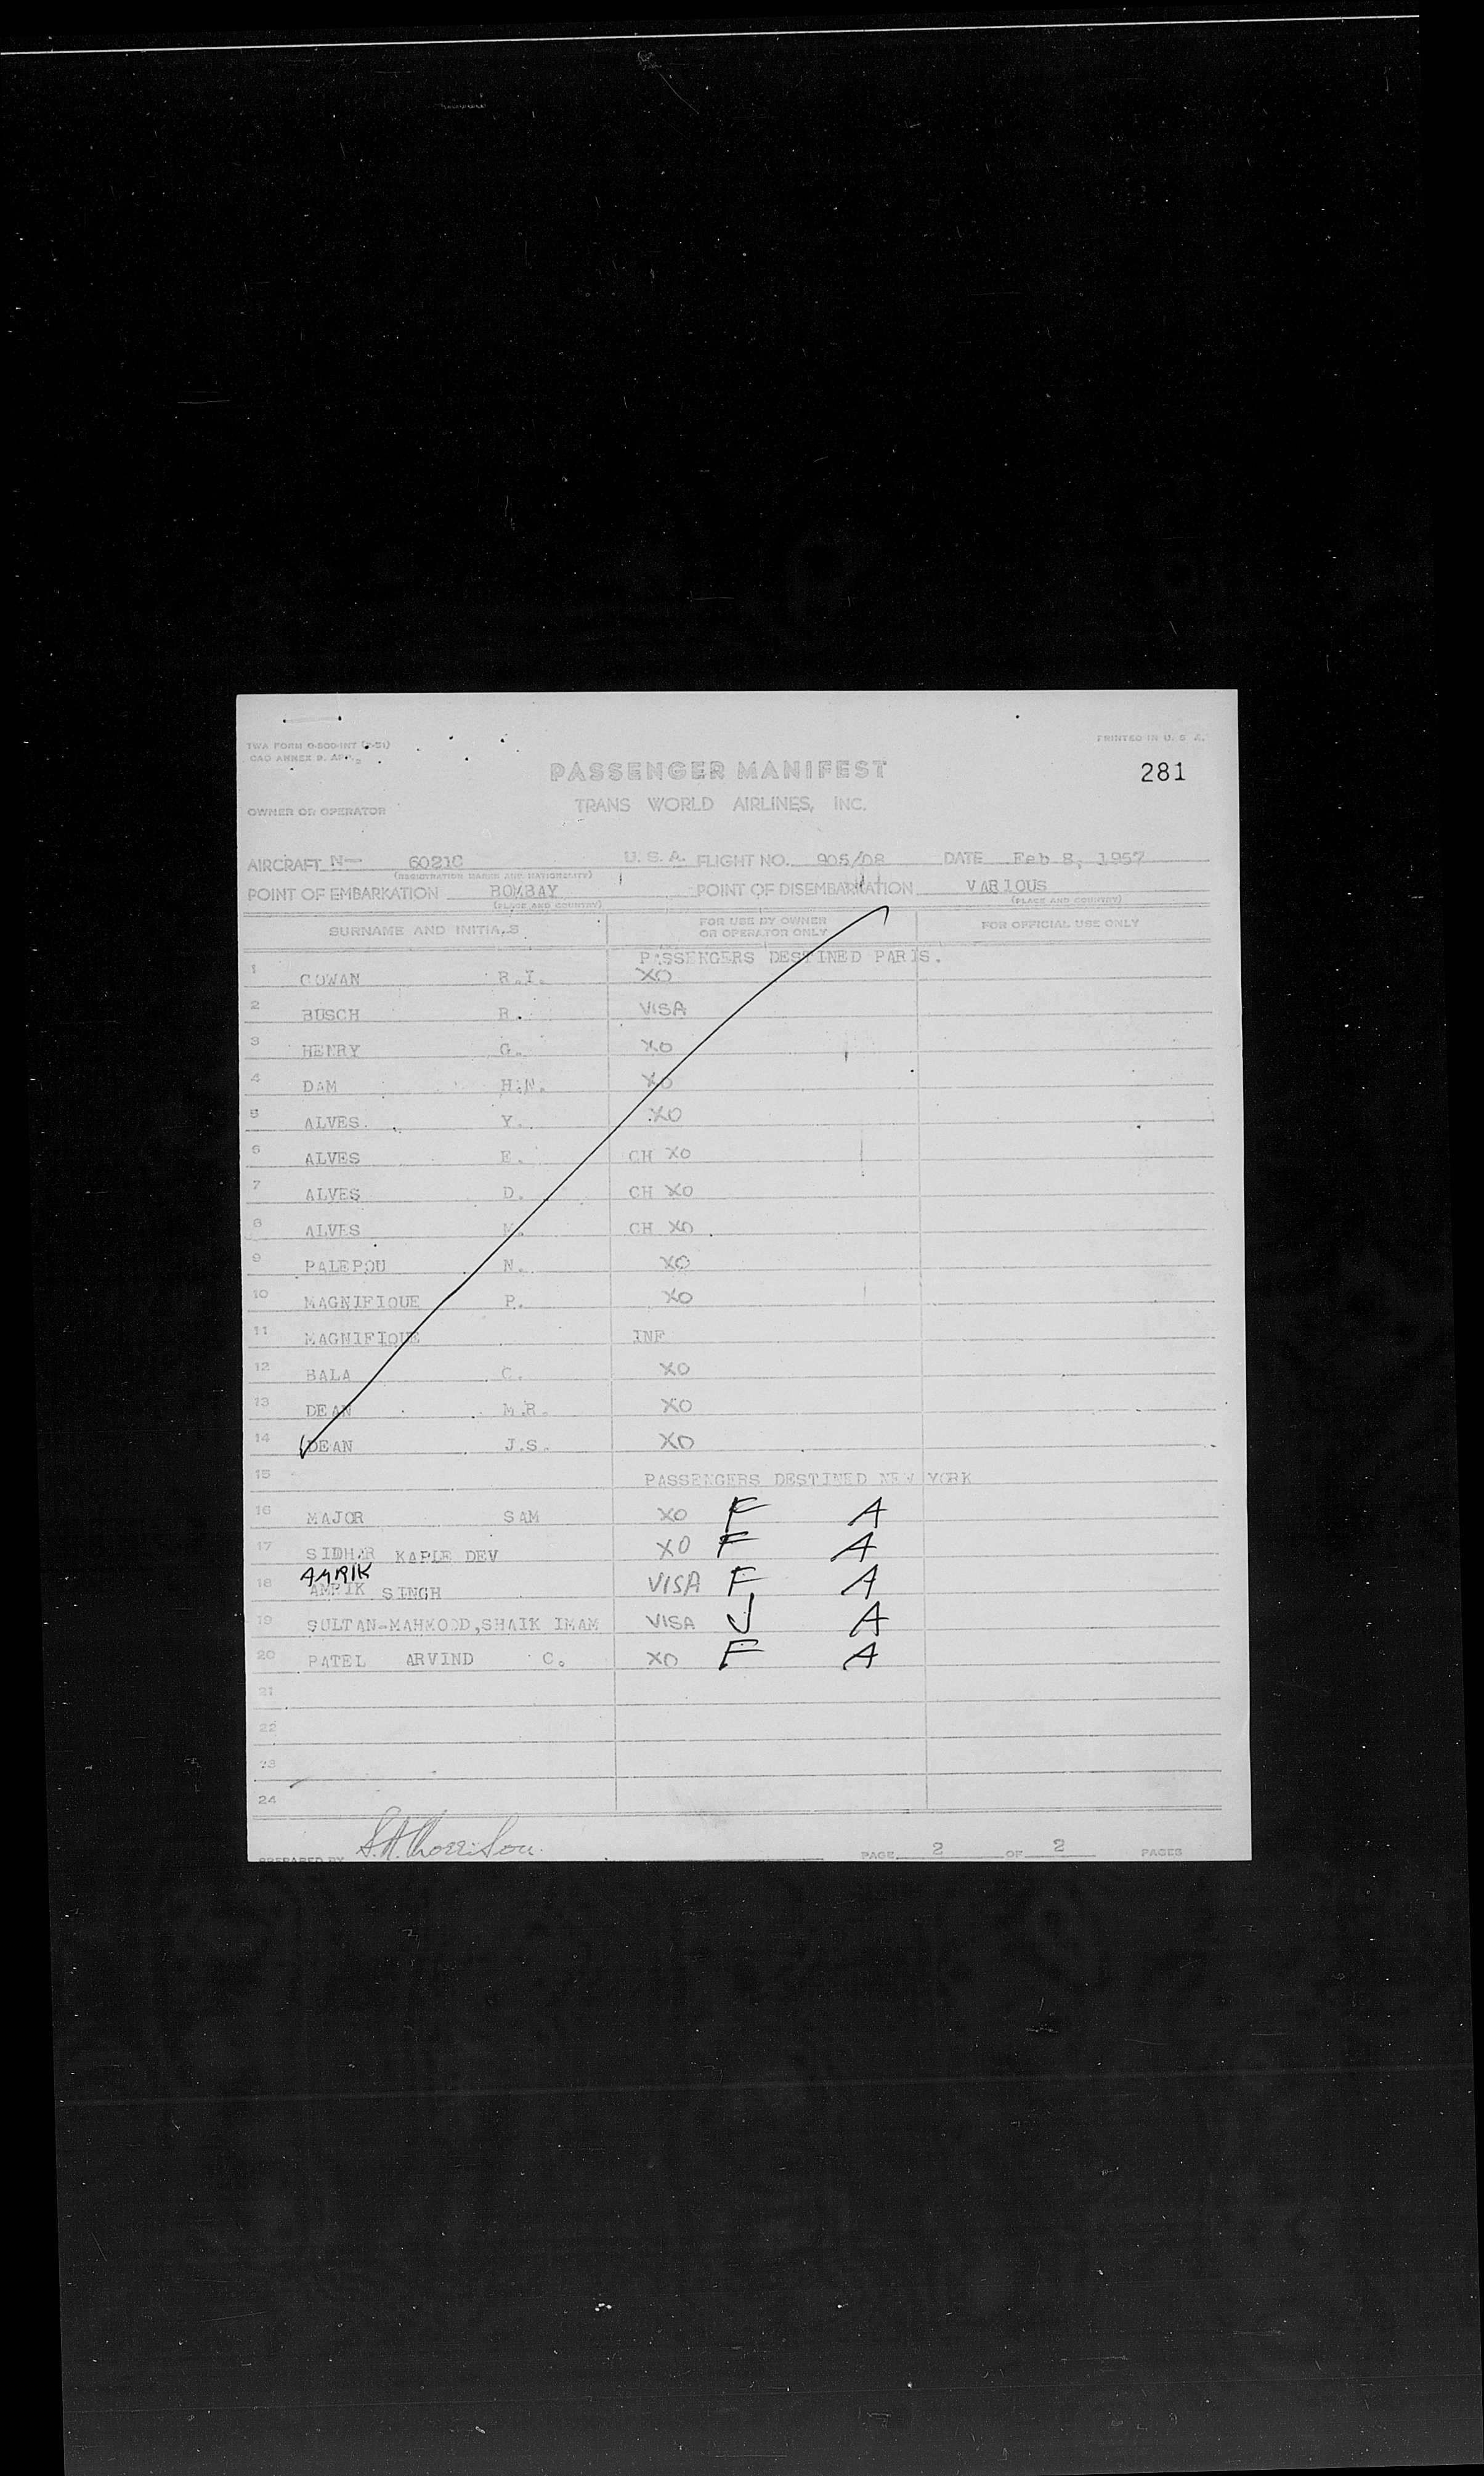 TWA FORM O-800-INT (2-51)
PRINTED IN U. S. A.
CAO ANNEX 9. APP. 2
PASSENGER MANIFEST
281
OWNER OR OPERATOR
TRANS WORLD AIRLINES, INC.
AIRCRAFT N— 6021C U. S. A. FLIGHT NO. 905/08 DATE Feb 8, 1957
(REGISTRATION MARKS AND NATIONALITY)
POINT OF EMBARKATION BOMBAY POINT OF DISEMBARKATION VARIOUS
(PLACE AND COUNTRY) (PLACE AND COUNTRY)
SURNAME AND INITIALS FOR USE BY OWNER OR OPERATOR ONLY FOR OFFICIAL USE ONLY
PASSENGERS DESTINED PARIS.
1 COWAN R.I. XO
2 BUSCH R. VISA
3 HENRY G. XO
4 DAM H.N. XO
5 ALVES. Y. XO
6 ALVES E. CH XO
7 ALVES D. CH XO
8 ALVES M. CH XO
9 PALEPOU N. XO
10 MAGNIFIQUE P. XO
11 MAGNIFIQUE INF
12 BALA C. XO
13 DEAN M.R. XO
14 DEAN J.S. XO
15 PASSENGERS DESTINED NEW YORK
16 MAJOR SAM XO F A
17 SIDHAR KAPLE DEV XO F A
AMRIK
18 AMRIK SINGH VISA F A
19 SULTAN-MAHMOOD, SHAIK IMAM VISA J A
20 PATEL ARVIND C. XO F A
21
22
23
24
PREPARED BY PAGE 2 OF 2 PAGES